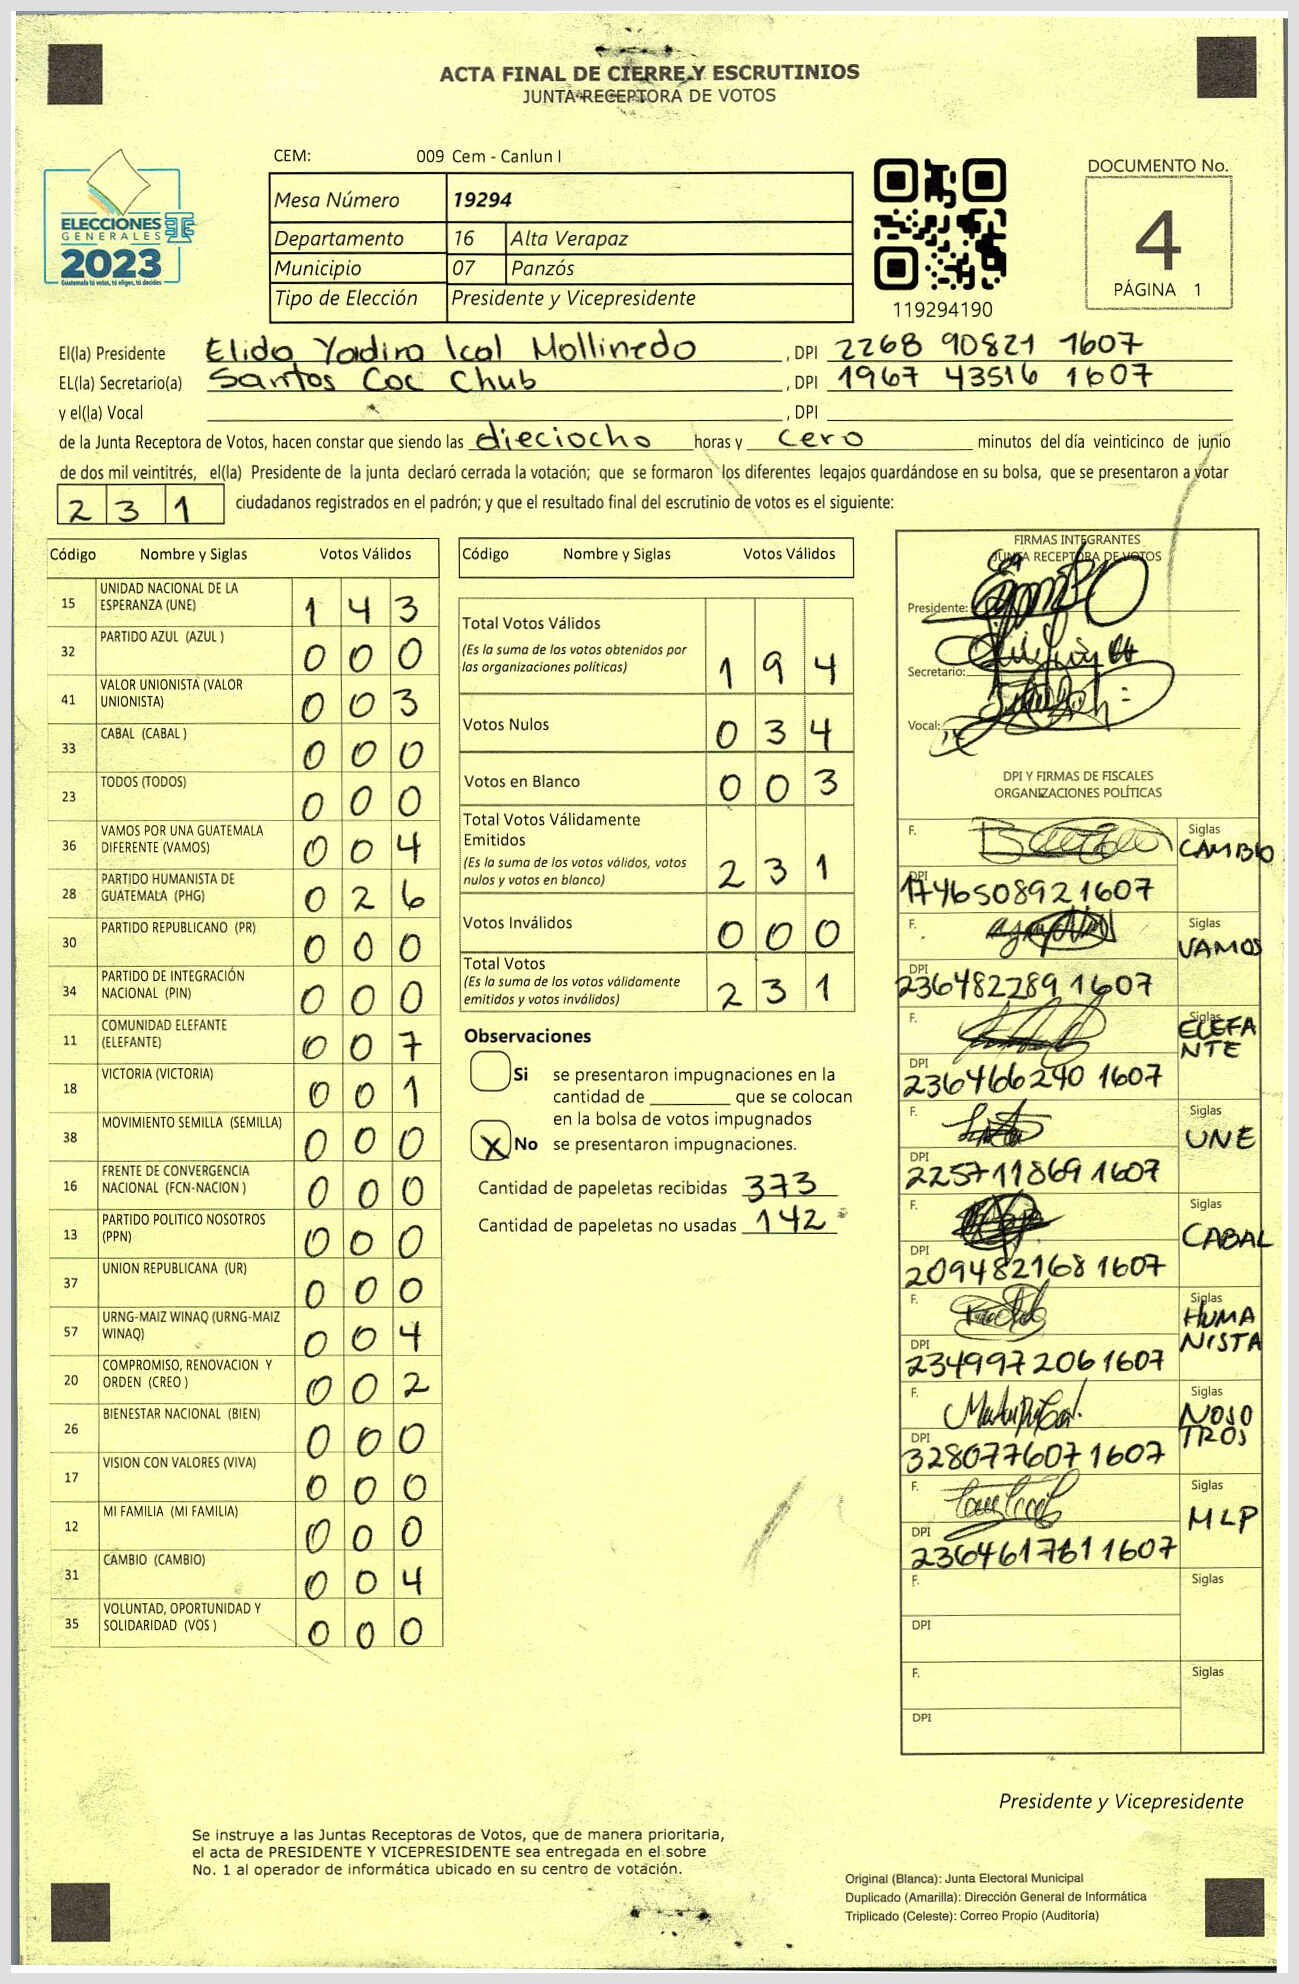 ACTA FINAL DE CIERRE Y ESCRUTINIOS
JUNTA RECEPTORA DE VOTOS
CEM: 009 Cem - Canlun I
ELECCIONES
GENERALES
2023
Guatemala tú votas, tú eliges, tú decides
Mesa Número 19294
Departamento 16 Alta Verapaz
Municipio 07 Panzós
Tipo de Elección Presidente y Vicepresidente
119294190
DOCUMENTO No.
4
PÁGINA 1
El(la) Presidente Elida Yadira Ical Mollinedo , DPI 2268 90821 1607
EL(la) Secretario(a) Santos Coc Chub , DPI 1967 43516 1607
y el(la) Vocal , DPI
de la Junta Receptora de Votos, hacen constar que siendo las dieciocho horas y cero minutos del día veinticinco de junio
de dos mil veintitrés, el(la) Presidente de la junta declaró cerrada la votación; que se formaron los diferentes legajos quardándose en su bolsa, que se presentaron a votar
231 ciudadanos registrados en el padrón; y que el resultado final del escrutinio de votos es el siguiente:
Código Nombre y Siglas Votos Válidos
15 UNIDAD NACIONAL DE LA ESPERANZA (UNE) 1 4 3
32 PARTIDO AZUL (AZUL ) 0 0 0
41 VALOR UNIONISTA (VALOR UNIONISTA) 0 0 3
33 CABAL (CABAL ) 0 0 0
23 TODOS (TODOS) 0 0 0
36 VAMOS POR UNA GUATEMALA DIFERENTE (VAMOS) 0 0 4
28 PARTIDO HUMANISTA DE GUATEMALA (PHG) 0 2 6
30 PARTIDO REPUBLICANO (PR) 0 0 0
34 PARTIDO DE INTEGRACIÓN NACIONAL (PIN) 0 0 0
11 COMUNIDAD ELEFANTE (ELEFANTE) 0 0 7
18 VICTORIA (VICTORIA) 0 0 1
38 MOVIMIENTO SEMILLA (SEMILLA) 0 0 0
16 FRENTE DE CONVERGENCIA NACIONAL (FCN-NACION ) 0 0 0
13 PARTIDO POLITICO NOSOTROS (PPN) 0 0 0
37 UNION REPUBLICANA (UR) 0 0 0
57 URNG-MAIZ WINAQ (URNG-MAIZ WINAQ) 0 0 4
20 COMPROMISO, RENOVACION Y ORDEN (CREO ) 0 0 2
26 BIENESTAR NACIONAL (BIEN) 0 0 0
17 VISION CON VALORES (VIVA) 0 0 0
12 MI FAMILIA (MI FAMILIA) 0 0 0
31 CAMBIO (CAMBIO) 0 0 4
35 VOLUNTAD, OPORTUNIDAD Y SOLIDARIDAD (VOS ) 0 0 0
Código Nombre y Siglas Votos Válidos
Total Votos Válidos 1 9 4
(Es la suma de los votos obtenidos por
las organizaciones políticas)
Votos Nulos 0 3 4
Votos en Blanco 0 0 3
Total Votos Válidamente
Emitidos 2 3 1
(Es la suma de los votos válidos, votos
nulos y votos en blanco)
Votos Inválidos 0 0 0
Total Votos 2 3 1
(Es la suma de los votos válidamente
emitidos y votos inválidos)
Observaciones
Si se presentaron impugnaciones en la
cantidad de ________ que se colocan
en la bolsa de votos impugnados
X No se presentaron impugnaciones.
Cantidad de papeletas recibidas 373
Cantidad de papeletas no usadas 142
FIRMAS INTEGRANTES
JUNTA RECEPTORA DE VOTOS
Presidente:
Secretario:
Vocal:
DPI Y FIRMAS DE FISCALES
ORGANIZACIONES POLÍTICAS
F. Siglas CAMBIO
DPI 1746508921607
F. Siglas VAMOS
DPI 2364822891607
F. Siglas ELEFA
NTE
DPI 236466240 1607
F. Siglas UNE
DPI 225711869 1607
F. Siglas CABAL
DPI 209482168 1607
F. Siglas HUMA
NISTA
DPI 234997206 1607
F. Siglas NOSO
TROS
DPI 328077607 1607
F. Siglas MLP
DPI 236461761 1607
F. Siglas
DPI
F. Siglas
DPI
Presidente y Vicepresidente
Se instruye a las Juntas Receptoras de Votos, que de manera prioritaria,
el acta de PRESIDENTE Y VICEPRESIDENTE sea entregada en el sobre
No. 1 al operador de informática ubicado en su centro de votación.
Original (Blanca): Junta Electoral Municipal
Duplicado (Amarilla): Dirección General de Informática
Triplicado (Celeste): Correo Propio (Auditoría)